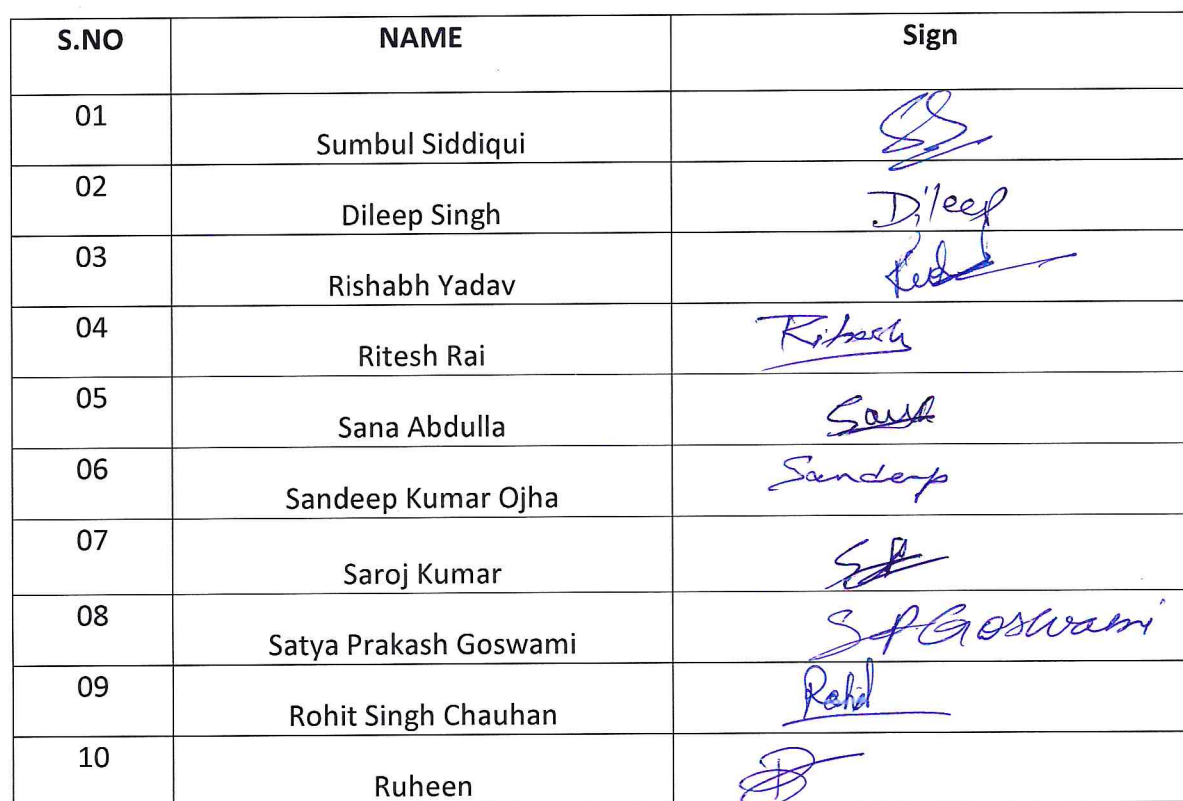 S.NO NAME Sign
01 Sumbul Siddiqui
02 Dileep Singh Dileep
03 Rishabh Yadav
04 Ritesh Rai Ritesh
05 Sana Abdulla Sana
06 Sandeep Kumar Ojha Sandeep
07 Saroj Kumar
08 Satya Prakash Goswami S P Goswami
09 Rohit Singh Chauhan Rohit
10 Ruheen